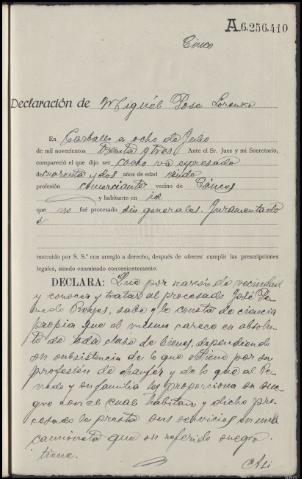 A.6.256.410
Cinco
Declaración de Miguél Pose Lorenzo
En Carballo a ocho de Julio
de mil novecientos treinta y tres Ante el Sr. Juez y mi Secretario,
compareció el que dijo ser como va expresado
de y dos años de edad viudo
profesión comerciante vecino de Cánces
y habitante en id
que no fué procesado sin generales. Juramentado
instruído por S. S.ª con arreglo a derecho, después de ofrecer cumplir las prescripciones
legales, siendo examinado convenientemente.
DECLARA: Que por razón de vecindad
y conocer y tratar al procesado José
de sabe y le consta de ciencia
propia que el mismo carece en absolu-
to de toda clase de bienes, dependiendo
su subsistencia de lo que obtiene por su
profesión de chaufer y de lo que al
y su familia les proporciona su sue-
gro con el cual habitan y dicho pro-
cesado le presta sus servicios en una
camioneta que su referido suegro
tiene.